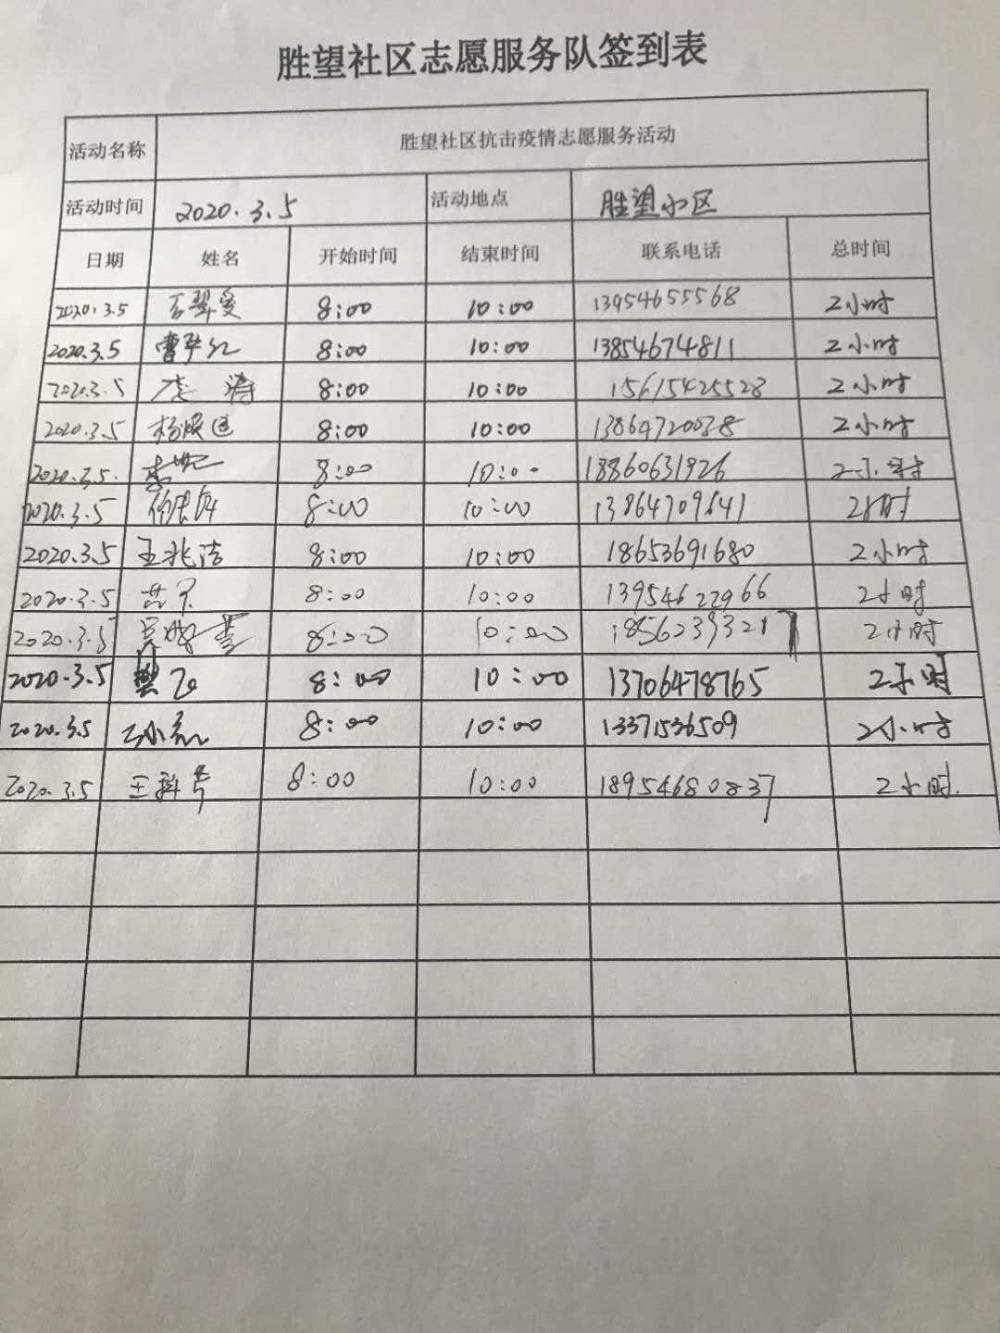 胜望社区志愿服务队签到表
活动名称 胜望社区抗击疫情志愿服务活动
活动时间 2020.3.5 活动地点 胜望小区
日期 姓名 开始时间 结束时间 联系电话 总时间
2020.3.5 8:00 10:00 13954655568 2小时
2020.3.5 8:00 10:00 13854674811 2小时
2020.3.5 李涛 8:00 10:00 15615425528 2小时
2020.3.5 8:00 10:00 13864720038 2小时
2020.3.5. 8:00 10:00 18860631926 2小时
2020.3.5 8:00 10:00 13864709641 2小时
2020.3.5 王兆洁 8:00 10:00 18653691680 2小时
2020.3.5 8:00 10:00 13954622966 2小时
2020.3.5 8:00 10:00 18562393217 2小时
2020.3.5 8:00 10:00 13706478765 2小时
2020.3.5 8:00 10:00 13371536509 2小时
2020.3.5 8:00 10:00 18954680837 2小时.